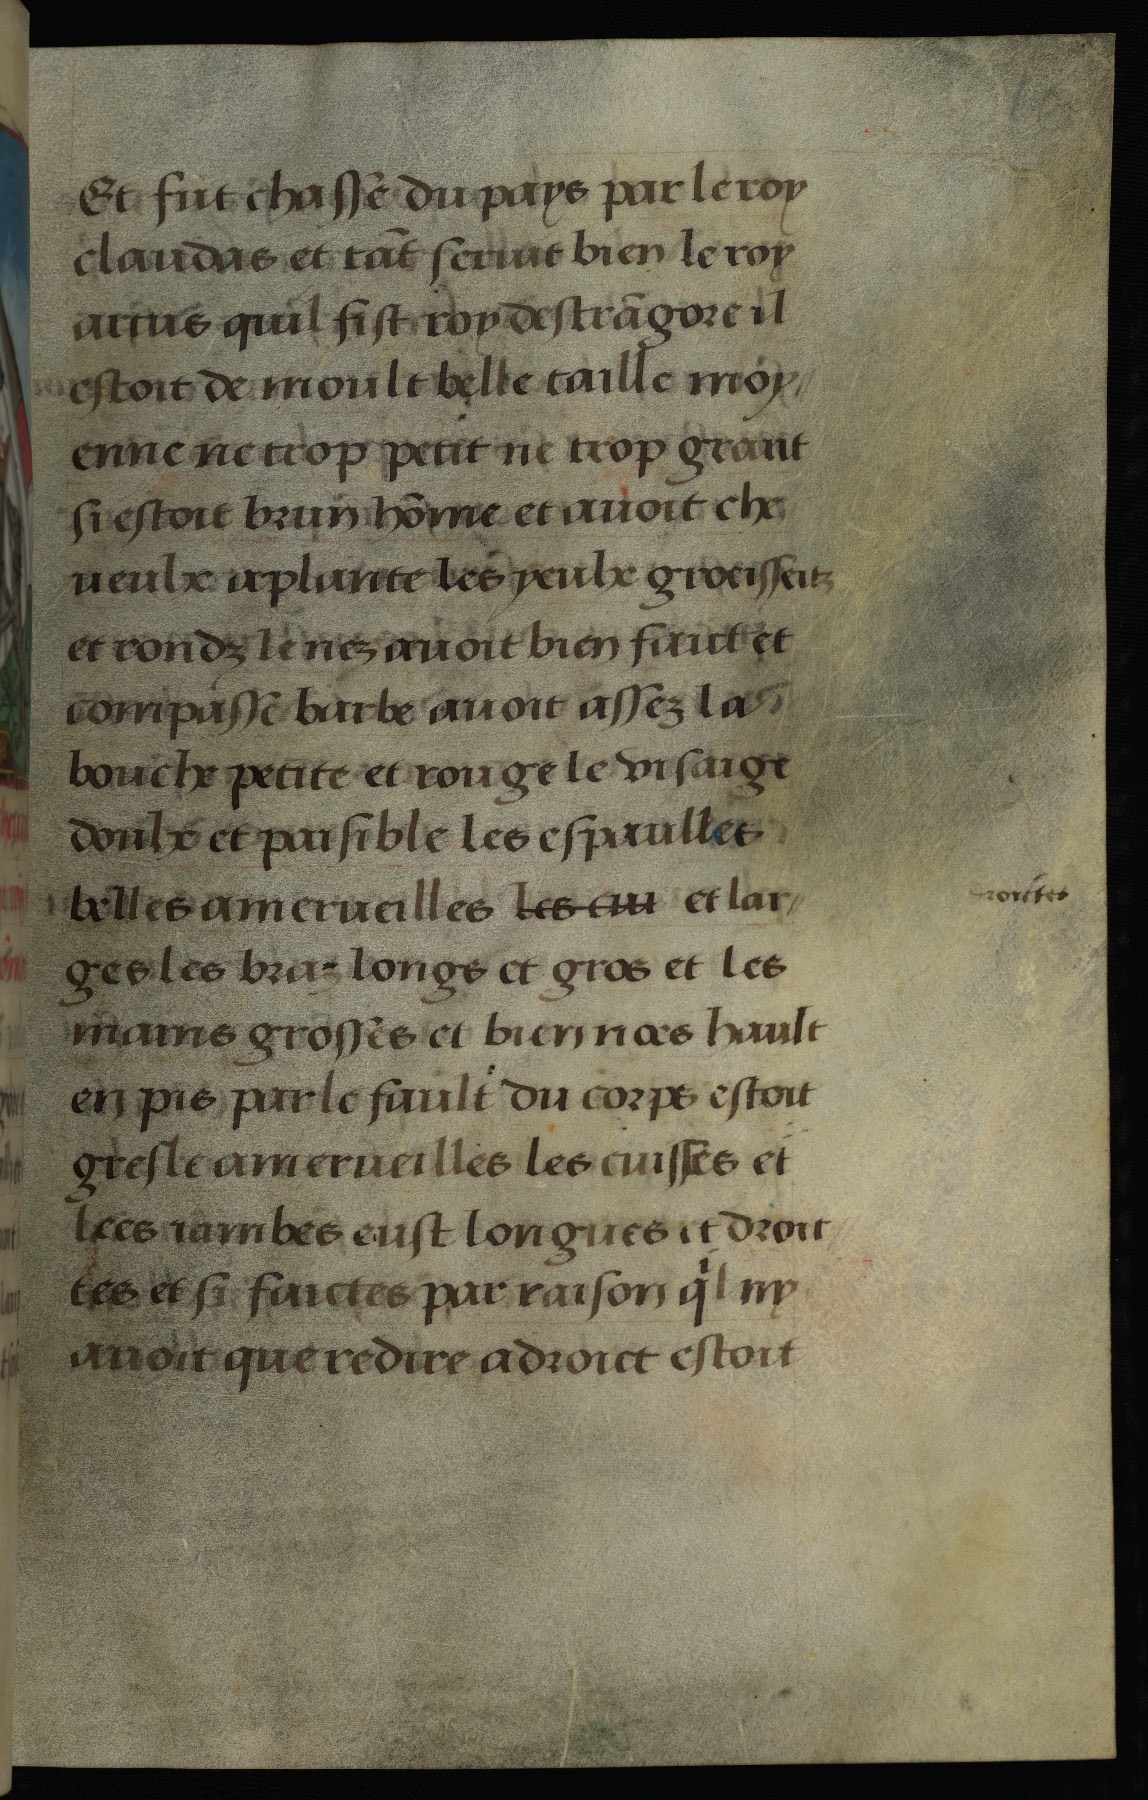 Et fut chasse du pays par le roy
claudas et tāt seruit bien le roy
artus quil fist roy destrāgore il
estoit de moult belle taille moy//
enne ne trop petit ne trop grant
si estoit brun hōme et auoit che
ueulx aplante les yeulx
et rondz le nez auoit bien faict et
compasse barbe auoit assez la
bouche petite et rouge le visaige
doulx et paisible les espaulles
belles amerueilles les cui et lar//
droictes
ges les braz longs et gros et les
mains grosses et bien noes hault
en pis par le fault du corps estoit
gresle amerueilles les cuisses et
lees iambes eust longues et droit//
tes et si faictes par raison q̇l ny
auoit que redire adroict estoit